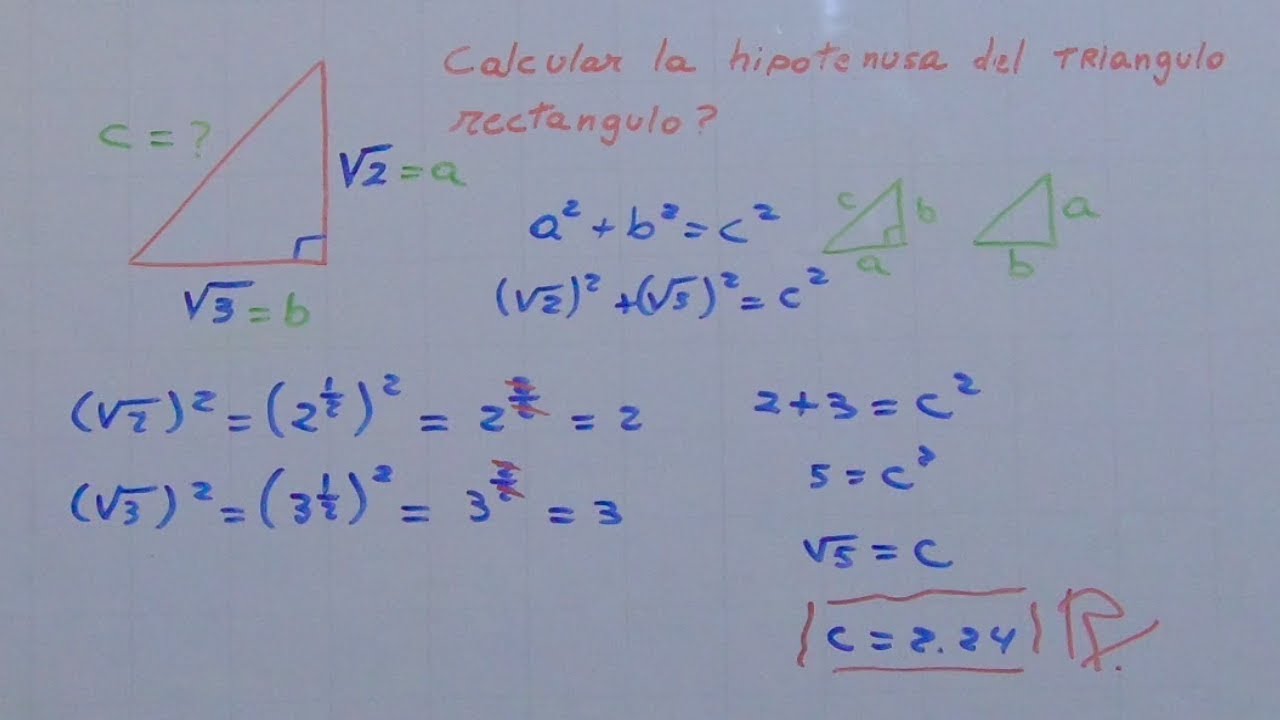 Calcular la hipotenusa del TRIangulo
rectangulo?
c = ?
√2 = a
√3 = b
a² + b² = c²
c b
a
a
b
(√2)² + (√3)² = c²
(√2)² = (2^(1/2))² = 2^(2/2) = 2
(√3)² = (3^(1/2))² = 3^(2/2) = 3
2 + 3 = c²
5 = c²
√5 = c
c = 2.24 R.